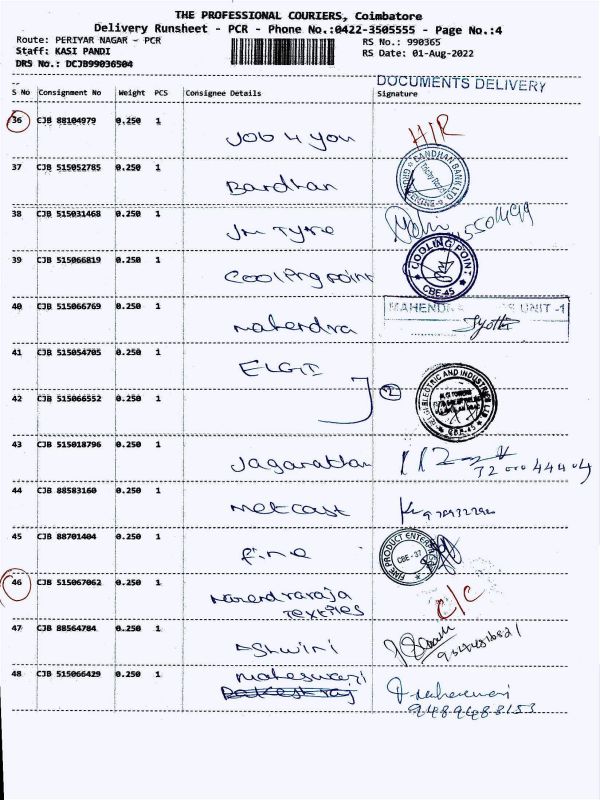 THE PROFESSIONAL COURIERS, Coimbatore
Delivery Runsheet - PCR - Phone No.:0422-3505555 - Page No.:4
Route: PERIYAR NAGAR - PCR
RS No.: 990365
Staff: KASI PANDI
RS Date: 01-Aug-2022
DRS No.: DCJB99036504
DOCUMENTS DELIVERY
S No Consignment No Weight PCS Consignee Details Signature
36 CJB 88104979 0.250 1
Job 4 you H/R
37 CJB 515052785 0.250 1
Bardhan BANDHAN BANK LTD.
38 CJB 515031468 0.250 1
Jm Tyre
39 CJB 515066819 0.250 1
Cooling point COOLING POINT CBE-45
40 CJB 515066769 0.250 1
Mahendra MAHENDRA UNIT -1
Jyothi
41 CJB 515054705 0.250 1
ELGI
2
42 CJB 515066552 0.250 1
ELECTRIC AND INDUSTRIES LTD. CBE-45
43 CJB 515018796 0.250 1
Jagarathan
44 CJB 88583160 0.250 1
Metcast
45 CJB 88701404 0.250 1
fine FINE PRODUCT ENTERPRISES CBE - 37
46 CJB 515067062 0.250 1
Narendraraja
Textiles C/C
47 CJB 88564784 0.250 1
Ashwini
48 CJB 515066429 0.250 1
maheswari
9489488153